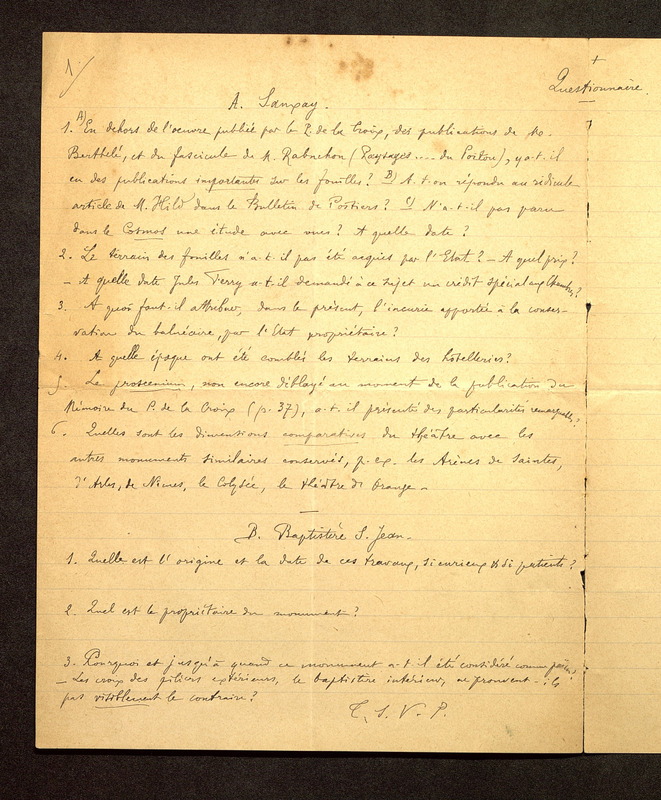 1/
+
Questionnaire.
A. Sanxay.
1. A) En dehors de l'oeuvre publiée par le P. de la Croix, des publications de Mo.
Berthelé, et du fascicule de M. Robuchon (Paysages .... du Poitou), y a-t-il
eu des publications importantes sur les fouilles? B) A-t-on répondu au ridicule
article de M. Hild dans le Bulletin de Poitiers? C) N'a-t-il pas paru
dans le Cosmos une étude avec vues? A quelle date?
2. Le terrain des fouilles n'a-t-il pas été acquis par l'Etat? - A quel prix?
- A quelle date Jules Ferry a-t-il demandé à ce sujet un crédit spécial aux Chambres?
3. A quoi faut-il attribuer, dans le présent, l'incurie apportée à la conser-
vation du balnéaire, par l'Etat propriétaire?
4. A quelle époque ont été comblé les terrains des hôtelleries?
5. Le proscenium, non encore déblayé au moment de la publication du
Mémoire du P. de la Croix (p. 37), a-t-il présenté des particularités remarquables?
6. Quelles sont les dimentions comparatives du théâtre avec les
autres monuments similaires conservés, p. ex. les Arènes de Saintes,
d'Arles, de Nimes, le Colysée, le théâtre d'Orange -
B. Baptistère S. Jean.
1. Quelle est l'origine et la date de ces travaux, si curieux & si patients?
2. Quel est le propriétaire du monument?
3. Pourquoi et jusqu'à quand ce monument a-t-il été considéré comme païen?
- Les croix des piliers extérieurs, le baptistère intérieur, ne prouvent-ils
pas visiblement le contraire?
T. S. V. P.